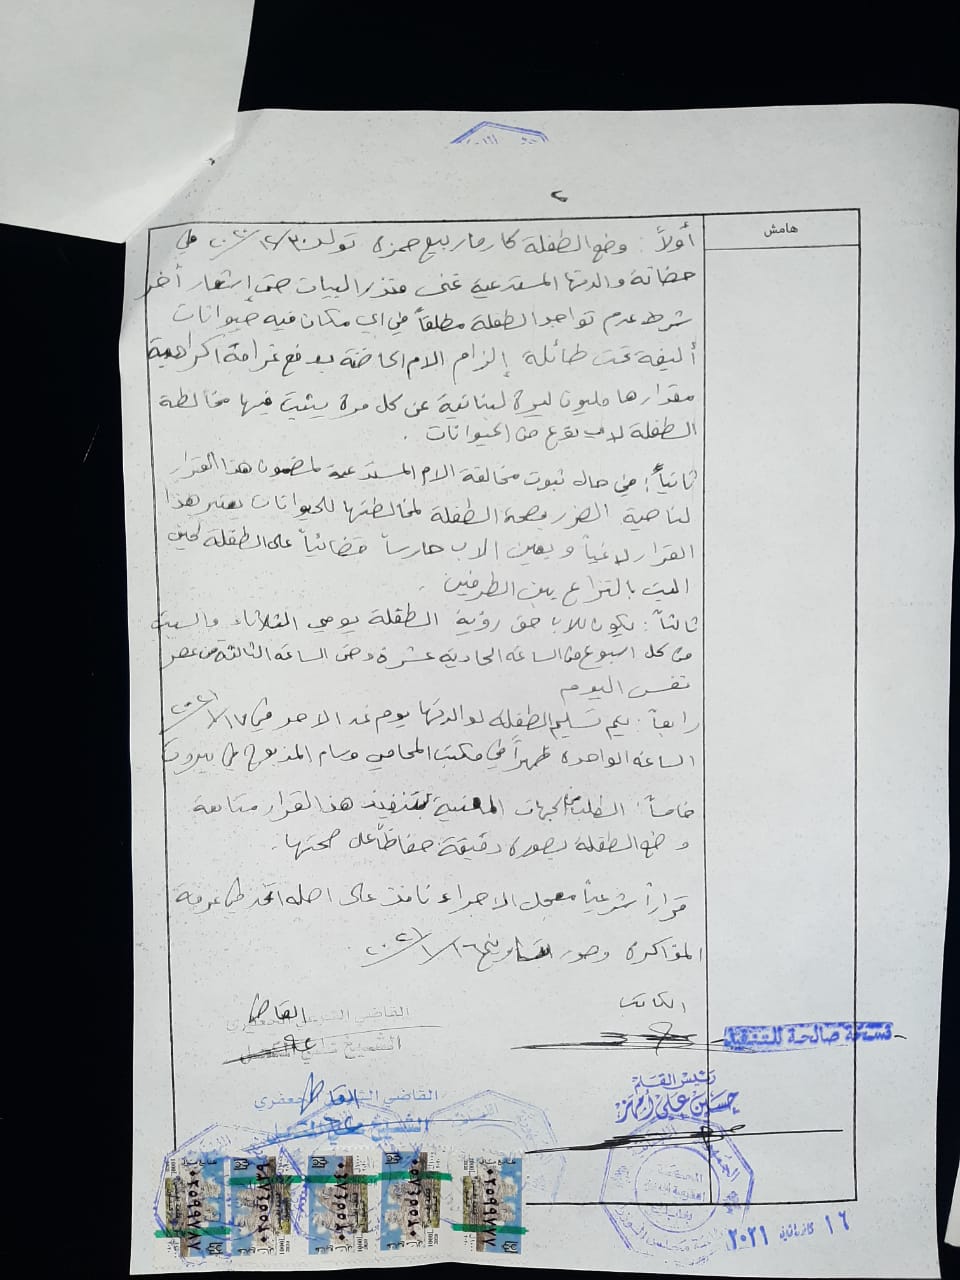 ٢
هامش
أولاً: وضع الطفلة كارما ربيع حمزه تولد ٣٠/١٢/٢٠٢٠ في
حضانة والدتها المستدعية غنى منذر البيات حتى إشعار أخر
شرط عدم تواجد الطفلة مطلقاً في اي مكان فيه حيوانات
أليفة تحت طائلة إلزام الام الحاضنة بدفع غرامة اكراهية
مقدارها مليون ليرة لبنانية عن كل مرة يثبت فيها مخالطة
الطفلة لاي نوع من الحيوانات.
ثانياً: في حال ثبوت مخالفة الام المستدعية لمضمون هذا القرار
لناحية الضرر بصحة الطفلة لمخالطتها للحيوانات يعتبر هذا
القرار لاغياً ويعين الاب حارساً قضائياً على الطفلة لحين
البت بالنزاع بين الطرفين.
ثالثاً: يكون للاب حق رؤية الطفلة يومي الثلاثاء والسبت
من كل اسبوع من الساعة الحادية عشرة وحتى الساعة الثالثة من عصر
نفس اليوم
رابعاً: يتم تسليم الطفلة لوالدتها يوم غد الاحد في ١٧/١/٢٠٢١
الساعة الواحدة ظهراً في مكتب المحامي وسام المذبوح في بيروت
خامساً: الطلب الجهات المعنية بتنفيذ هذا القرار متابعة
وضع الطفلة بصورة دقيقة حفاظاً على صحتها.
قراراً شرعياً معجل الاجراء نافذ على اصله اتخذ في غرفة
المذاكرة وصدر بتاريخ ١٦/١/٢٠٢١
الكاتب
القاضي
القاضي الشرعي الجعفري
نسخة صالحة للتنفيذ
رئيس القلم
حسين علي أمهز
القاضي الشرعي الجعفري
١٦ كانون الثاني ٢٠٢١